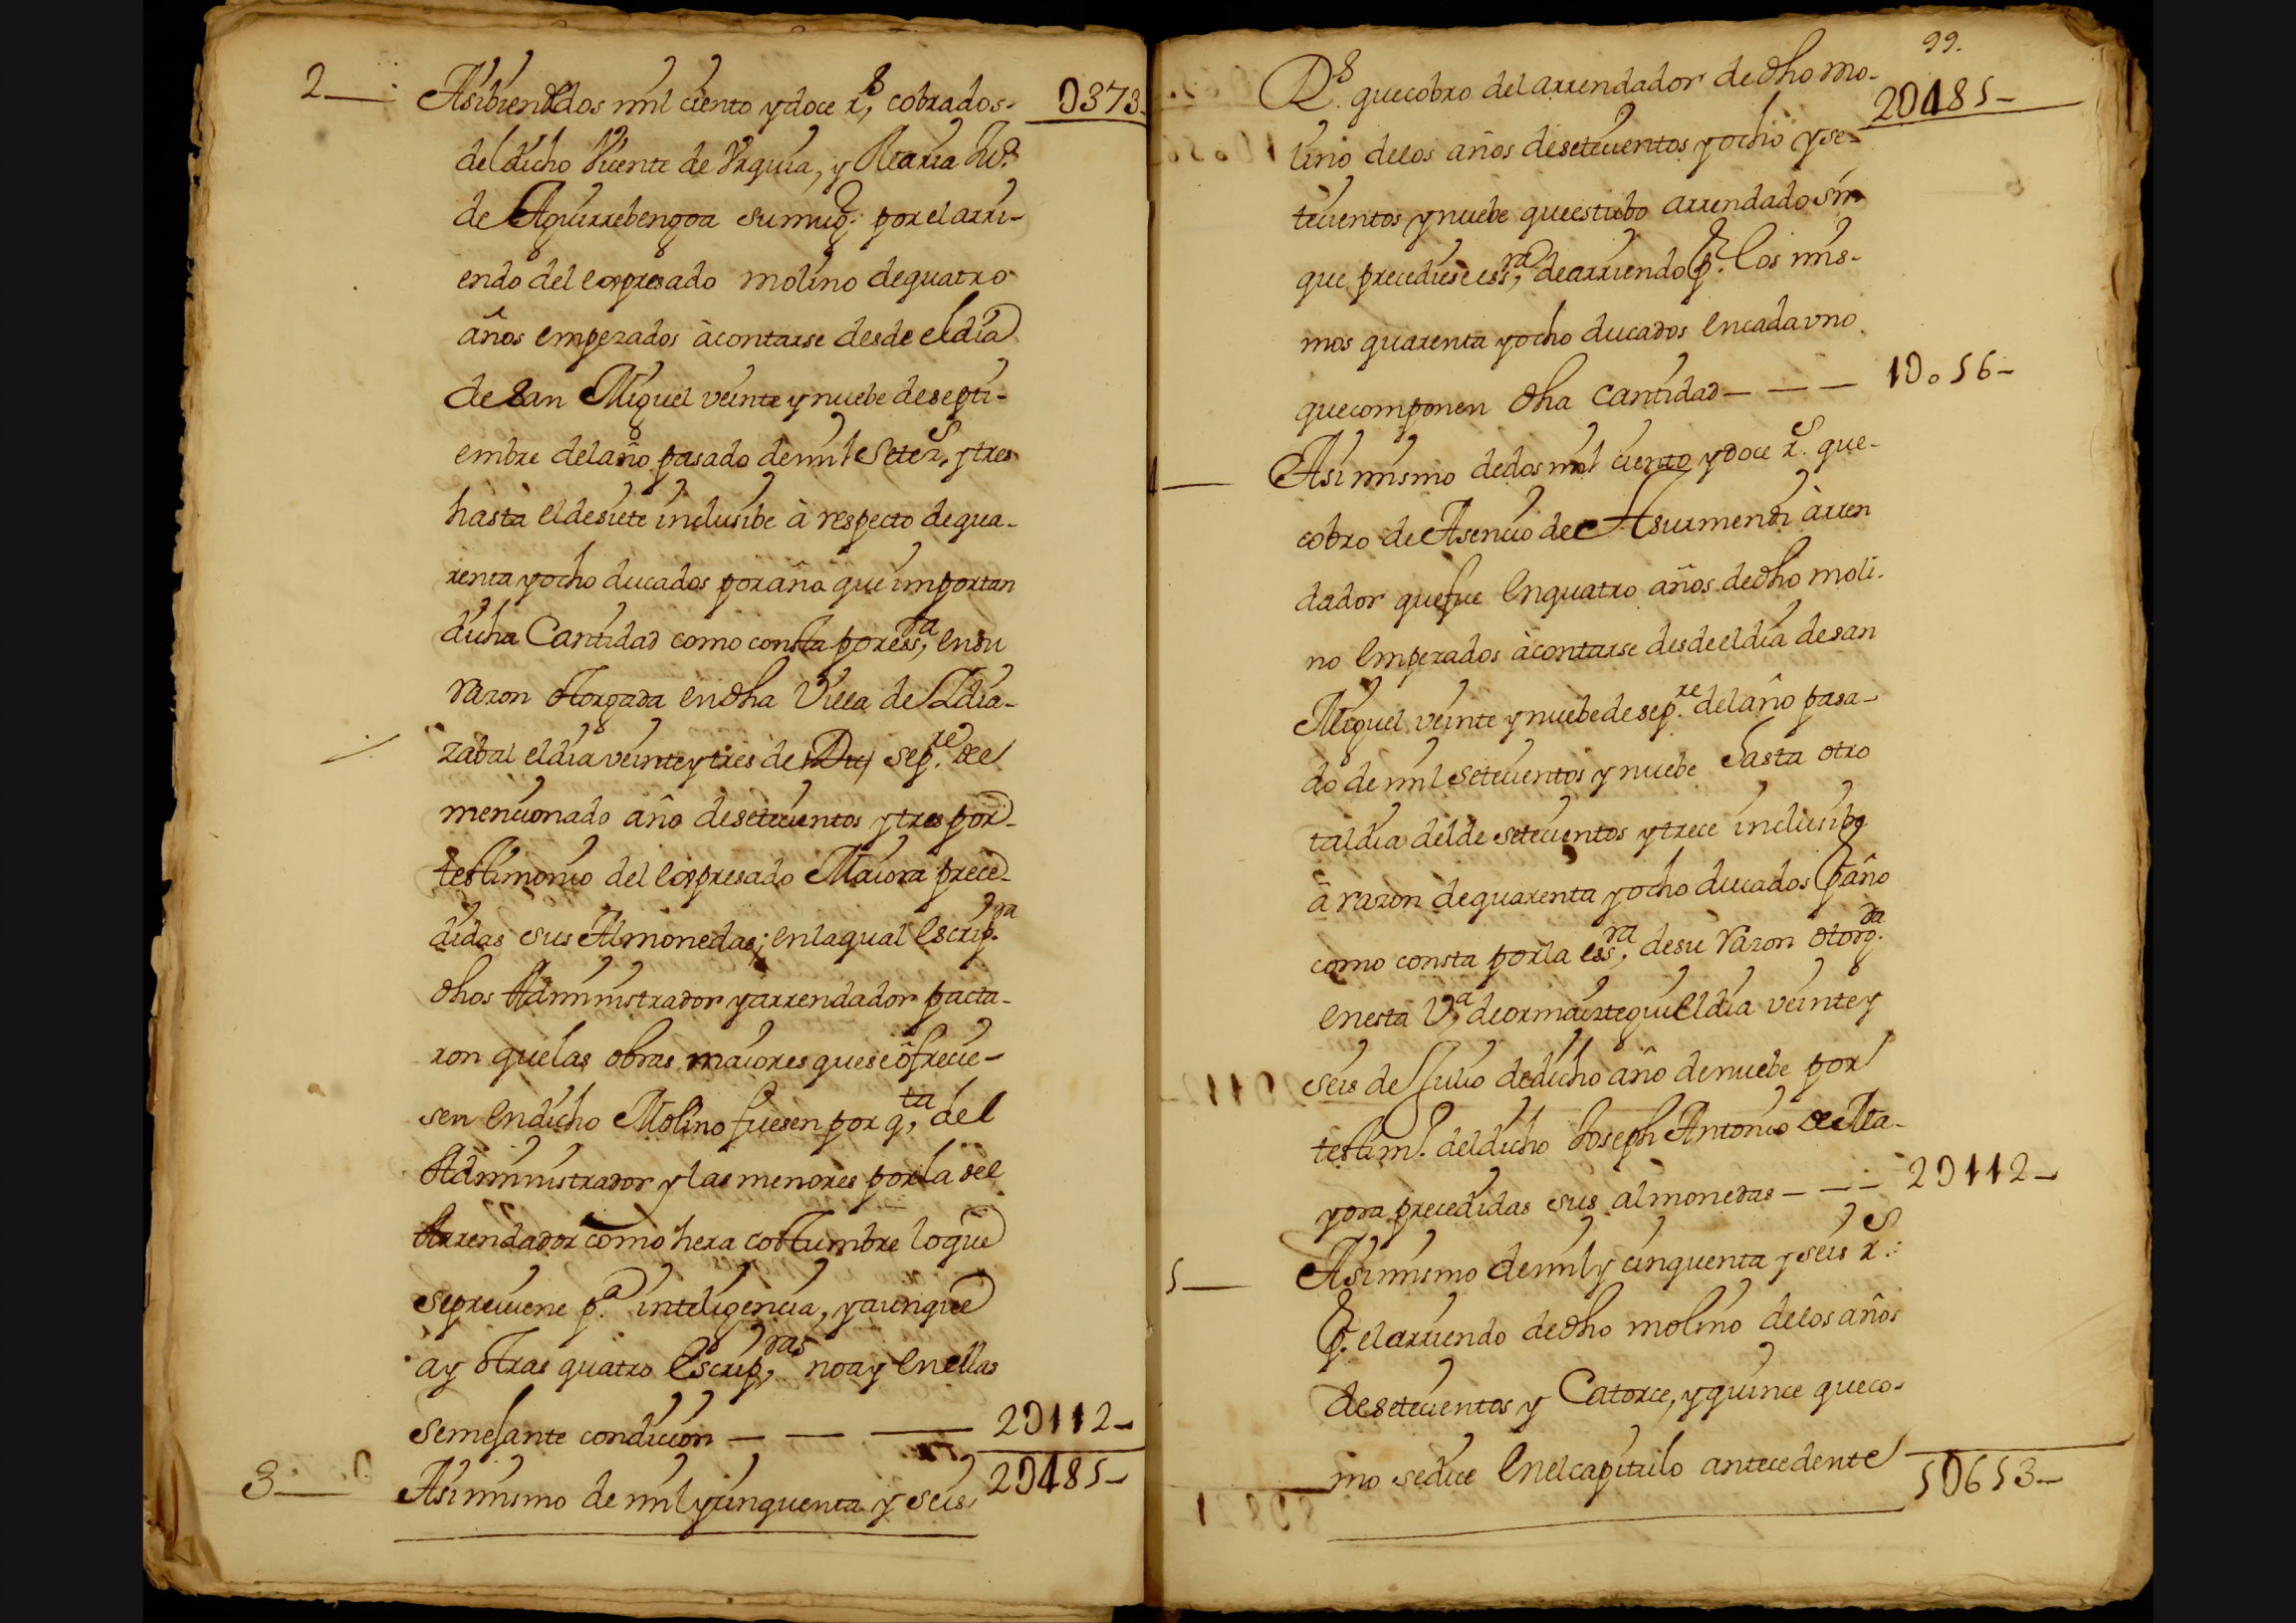 2— Asibien de dos mil ciento y doce rs, cobrados 0373
del dicho Vicente de Vrquia, y Maria
de Aguirrebengoa su mug.r por el arri-
endo del expresado molino de quatro
años empezados à contarse desde el dia
de San Miguel veinte y nuebe de septi-
embre del año pasado de mil Setez.s y tres
hasta el de siete inclusibe à respecto de qua-
renta y ocho ducados por año que importan
dicha Cantidad como consta por ess,ra en su
razon otorgada en dha Villa de Ydia-
zabal el dia veinte y tres de sep.re de el
mencionado año de setecientos y tres por
testimonio del expresado Maiora prece-
didas sus Almonedas; en la qual escrip.ra
dhos Administrador y arrendador pacta-
ron que las obras maiores que se ofrecie-
sen en dicho Molino fuesen por q,ta del
Administrador y las menores por la del
Arrendador como hera costumbre lo que
se previene p.a inteligencia, y aunque
ay otras quatro escrip,ras no ay en ellas
semejante condicion — — — 20112—
20485—
3— Asi mismo de mil y cinquenta y seis
99.
Rs. que cobro del arrendador de dho mo- 20485—
lino de los años de setecientos y ocho y se-
tecientos y nuebe que estubo arrendado sin
que precediese ess,ra de arriendo p.r los mis-
mos quarenta y ocho ducados en cada vno
que componen dha Cantidad — — — 10056—
4— Asi mismo de dos mil ciento y doce r.s que
cobro de Asencio de Asurmendi arren
dador que fue en quatro años de dho moli-
no empezados à contarse desde el dia de san
Miguel veinte y nuebe de sep.re del año pasa-
do de mil setecientos y nuebe hasta otro
tal dia del de setecientos y trece inclusibe
à razon de quarenta y ocho ducados p.r año
como consta por la ess,ra de su razon otorg.da
en esta V,a de ormaiztegui el dia veinte y
seis de Julio de dicho año de nuebe por
testim.o del dicho Joseph Antonio de Ma-
yora precedidas sus almonedas — — — 20112—
5— Asi mismo de mil y cinquenta y seis r.s
p.r el arriendo de dho molino de los años
de setecientos y Catorce, y quince que co-
mo se dice en el capitulo antecedente 50653—